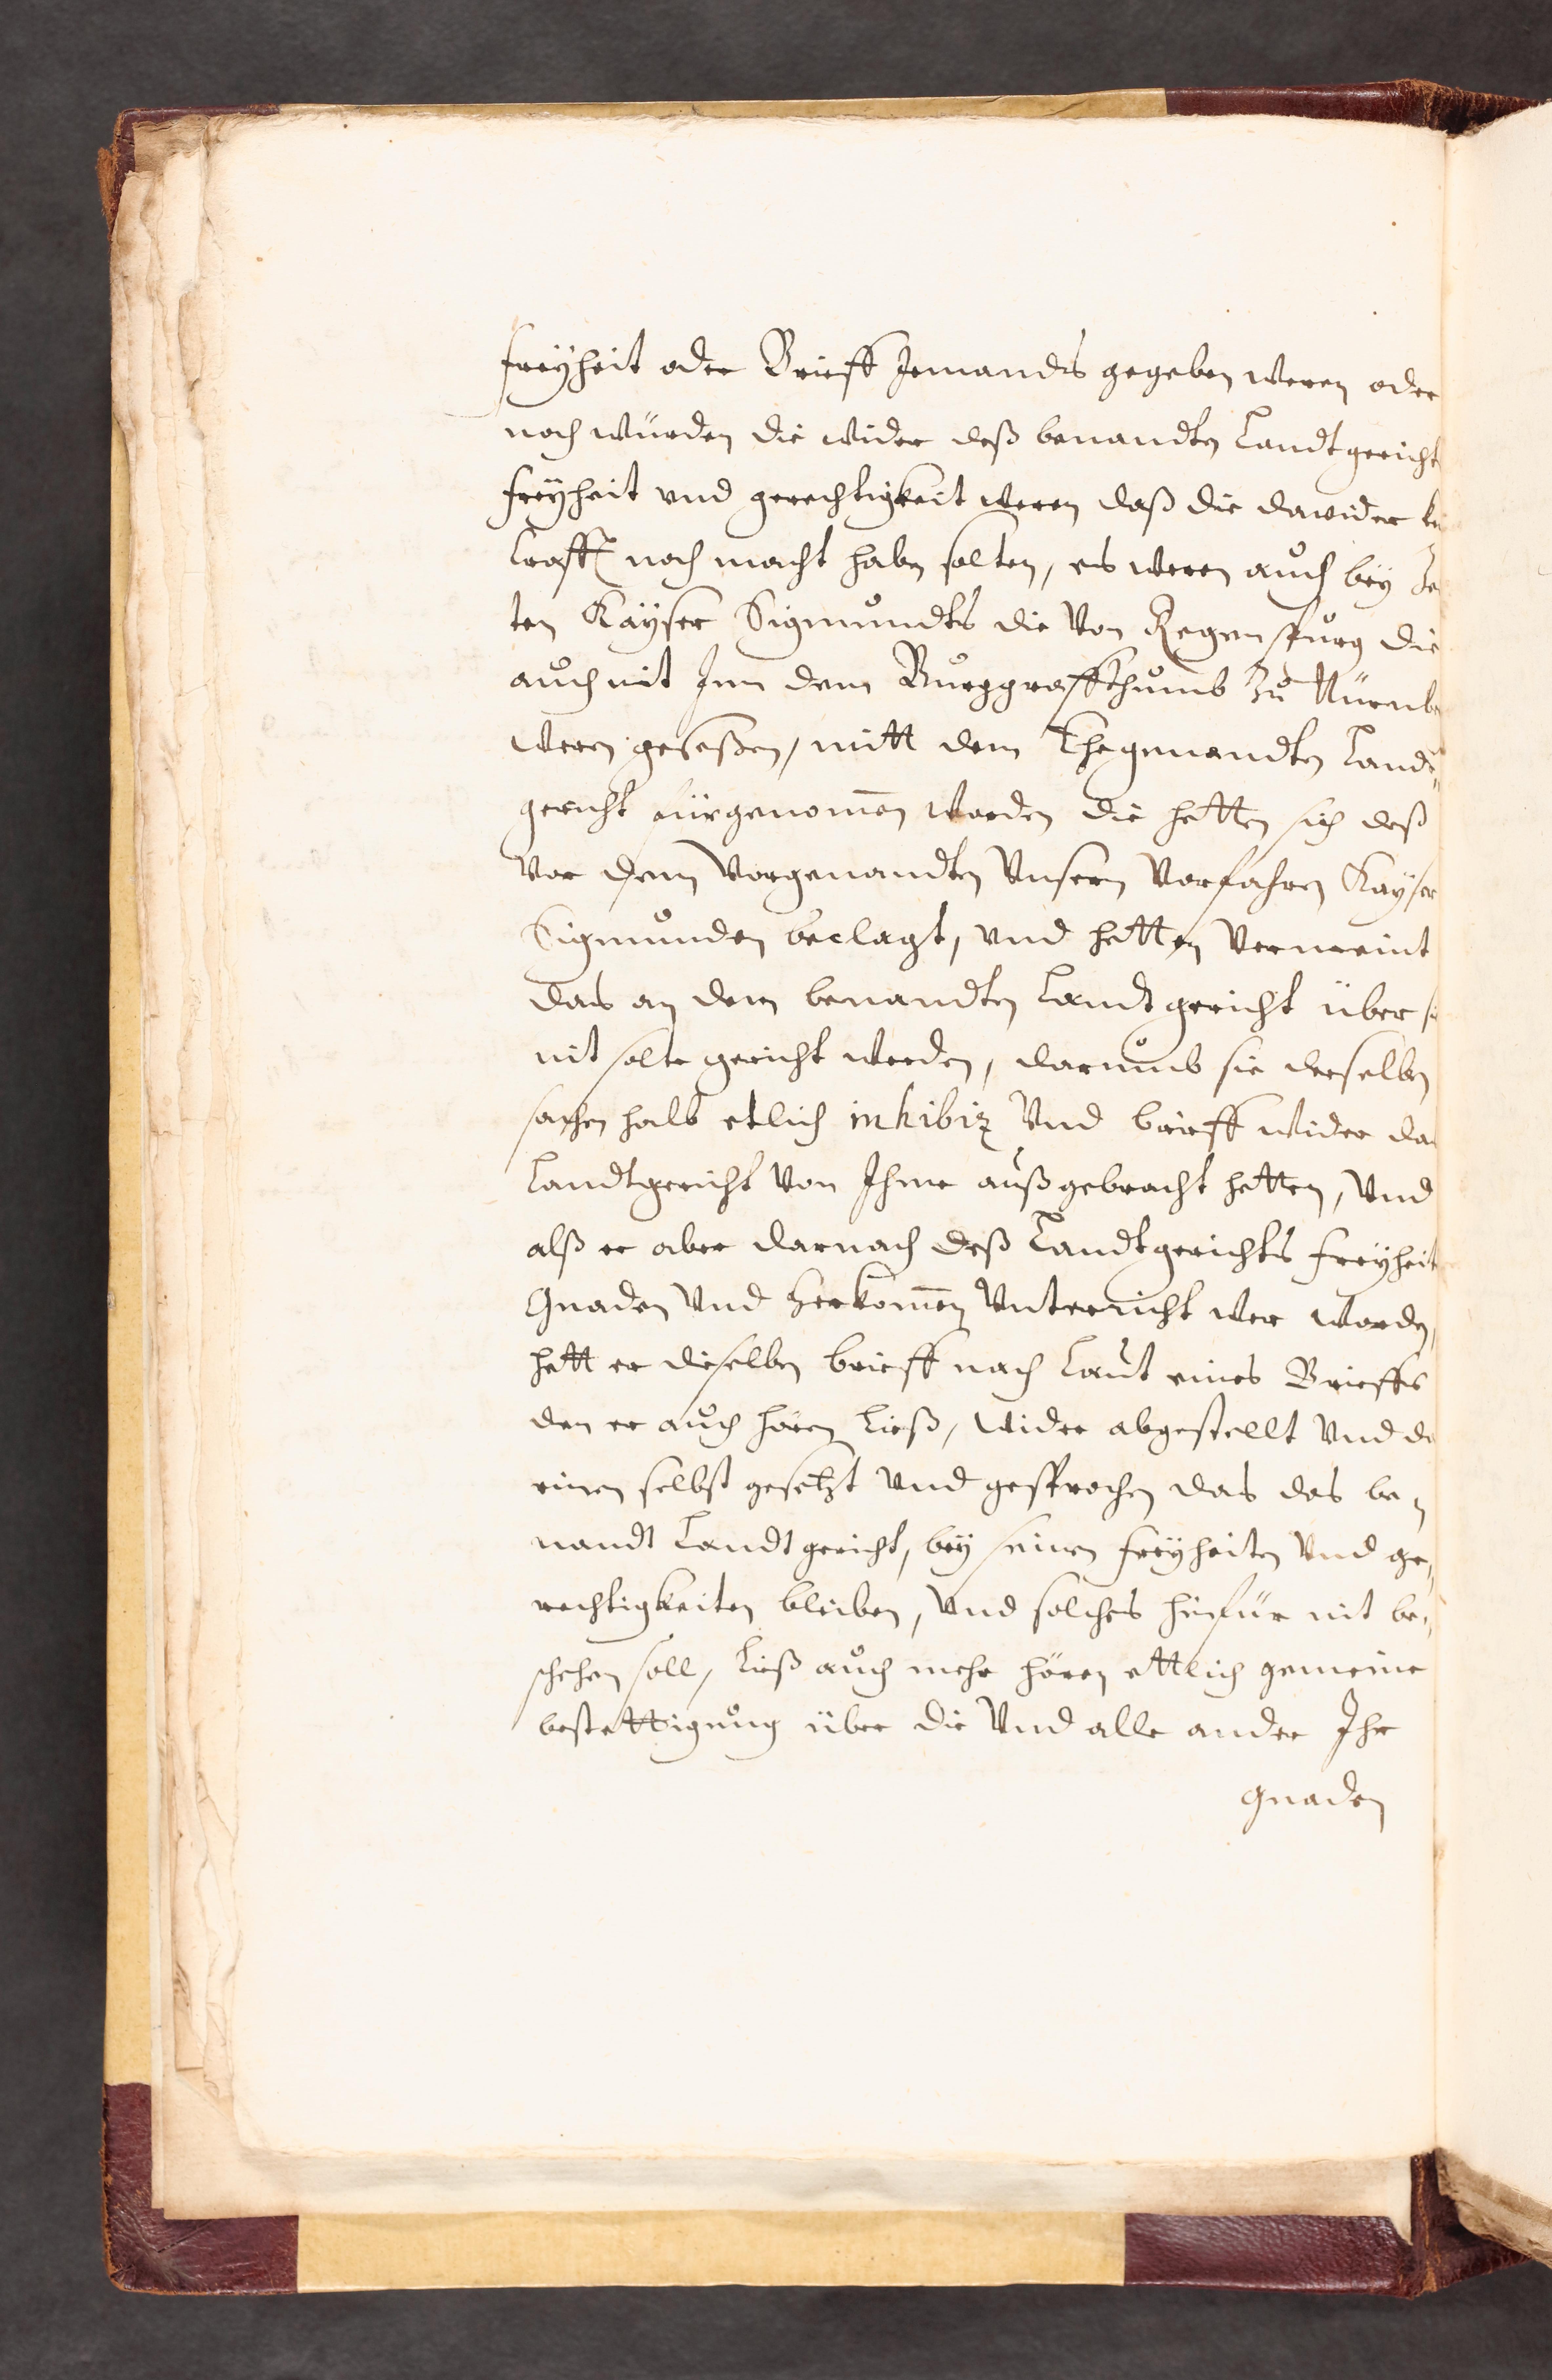 freÿheit oder Brieff Jemandts gegeben weren oder
noch würden die wider deß benandten Landtgericht
freÿheit vnd gerechtigkeit weren daß die dawider
Crafft noch macht haben solten, es weren auch beÿ
ten Kaÿser Sigmundts die Von Regenspurg die
auch mit Jnn dem Burggraffthumb Zu Nürnb
weren geseßen, mitt dem Ehegenandten Landt„
gericht fürgenomen worden die hetten sich deß
vor dem Vorgenandten Vnsern Vorfahren Kaÿser
Sigmunden beclagt, vnd hetten Vermeint
das an dem benandten Landtgericht über
nit solte gericht werden, darumb sie derselben
sachen halb etlich inhibiz Vnd brieff wider da
Landtgericht Von Jhme außgebracht hetten, Vnd
alß er aber darnach deß Landtgerichts freÿheit
Gnaden Vnd herkomen Vnterricht wer worden,
hett er dieselben brieff nach Laut eines Brieffs
den er auch hören ließ, wider abgestellt Vnd
einen selbst gesetzt Vnd gesprochen das das be„
nandt Landtgericht, beÿ seinen freÿheiten Vnd ge„
rechtigkeiten bleiben, Vnd solches hinfür nit be„
schehen soll, ließ auch mehr hören ettlich gemeine
bestettigung über die Vnd alle ander Jhr
Gnaden